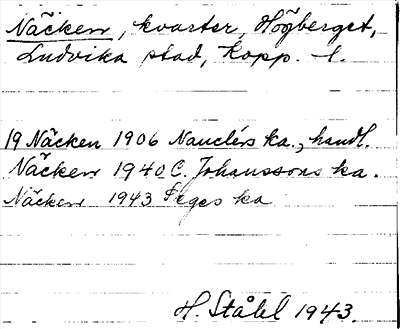 Näcken, kvarter, Högberget,
Ludvika stad, Kopp. l.
19 Näcken 1906 Nauclérs ka., handl.
Näcken 1940 C. Johanssons ka.
Näcken 1943 Seges ka
H. Ståhl 1943.